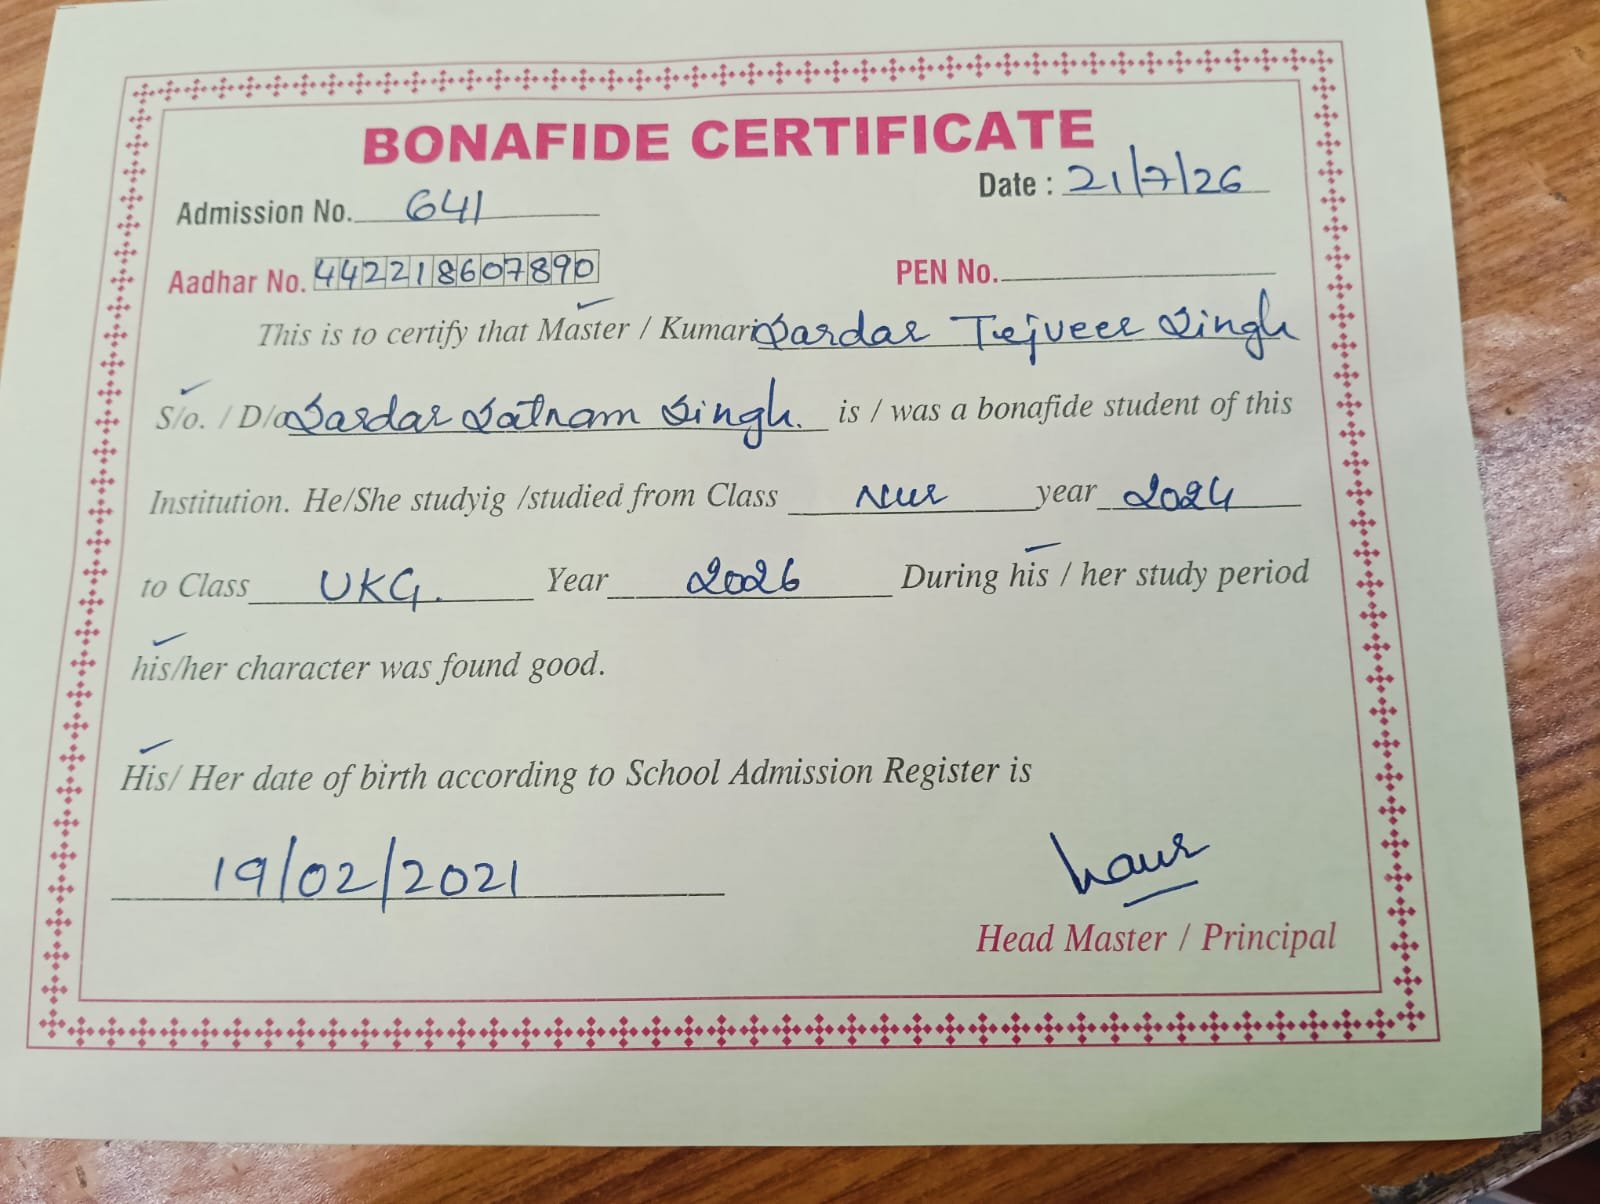 BONAFIDE CERTIFICATE
Admission No. 641 Date : 21/7/26
Aadhar No. 442218607890 PEN No.
This is to certify that Master / Kumari Sardar Tejveer Singh
S/o. / D/o Sardar Satnam Singh. is / was a bonafide student of this
Institution. He/She studyig /studied from Class Nur year 2024
to Class UKG. Year 2026 During his / her study period
his/her character was found good.
His/ Her date of birth according to School Admission Register is
19/02/2021
Head Master / Principal